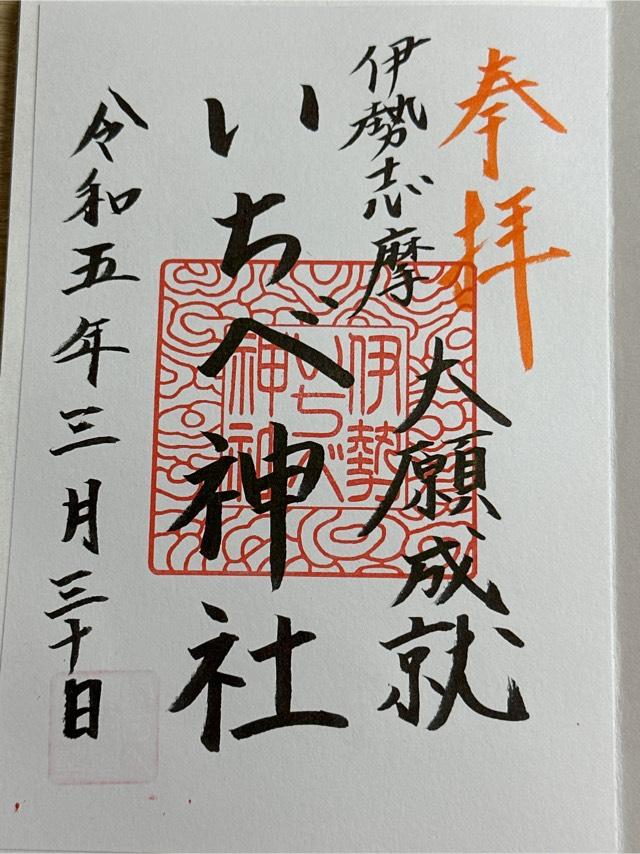 奉拝
伊勢志摩
大願成就
いちべ神社
伊勢
いちべ
神社
令和五年三月三十日